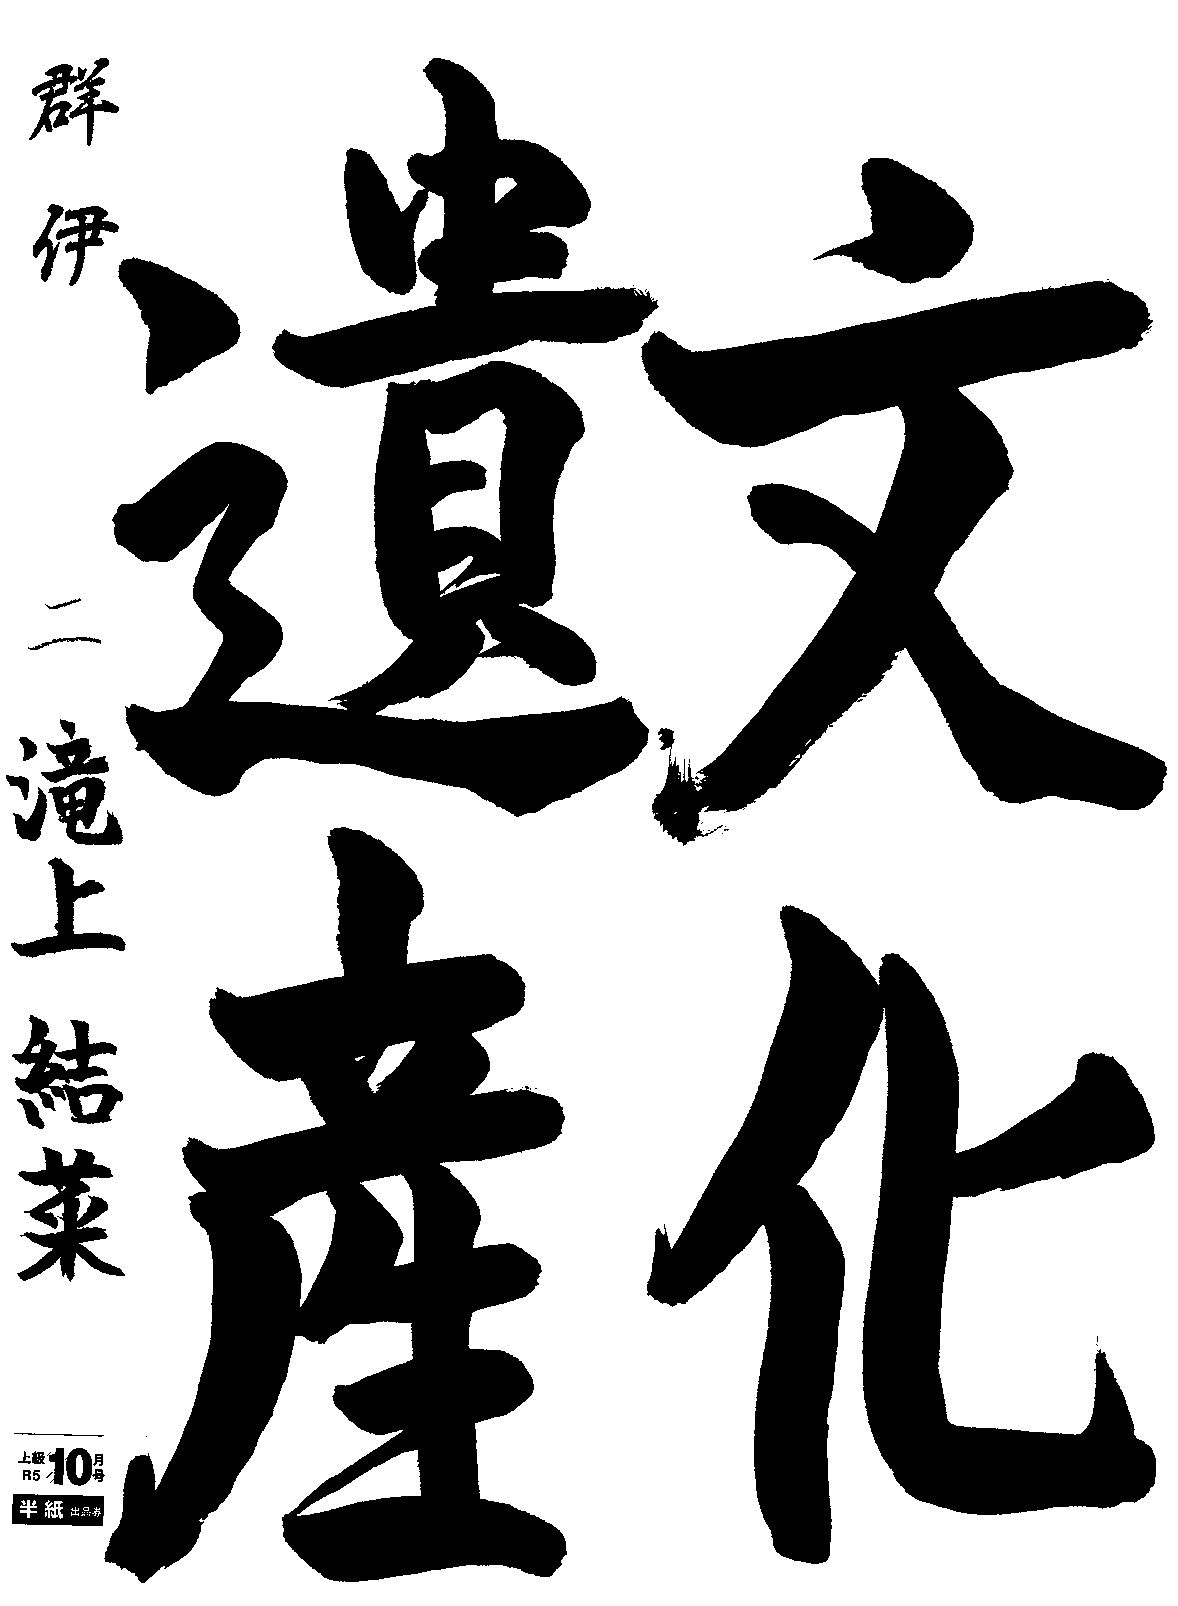 文化
遺産
群 伊 二 滝上 結菜
上級
R5/10月号
半紙 出品券